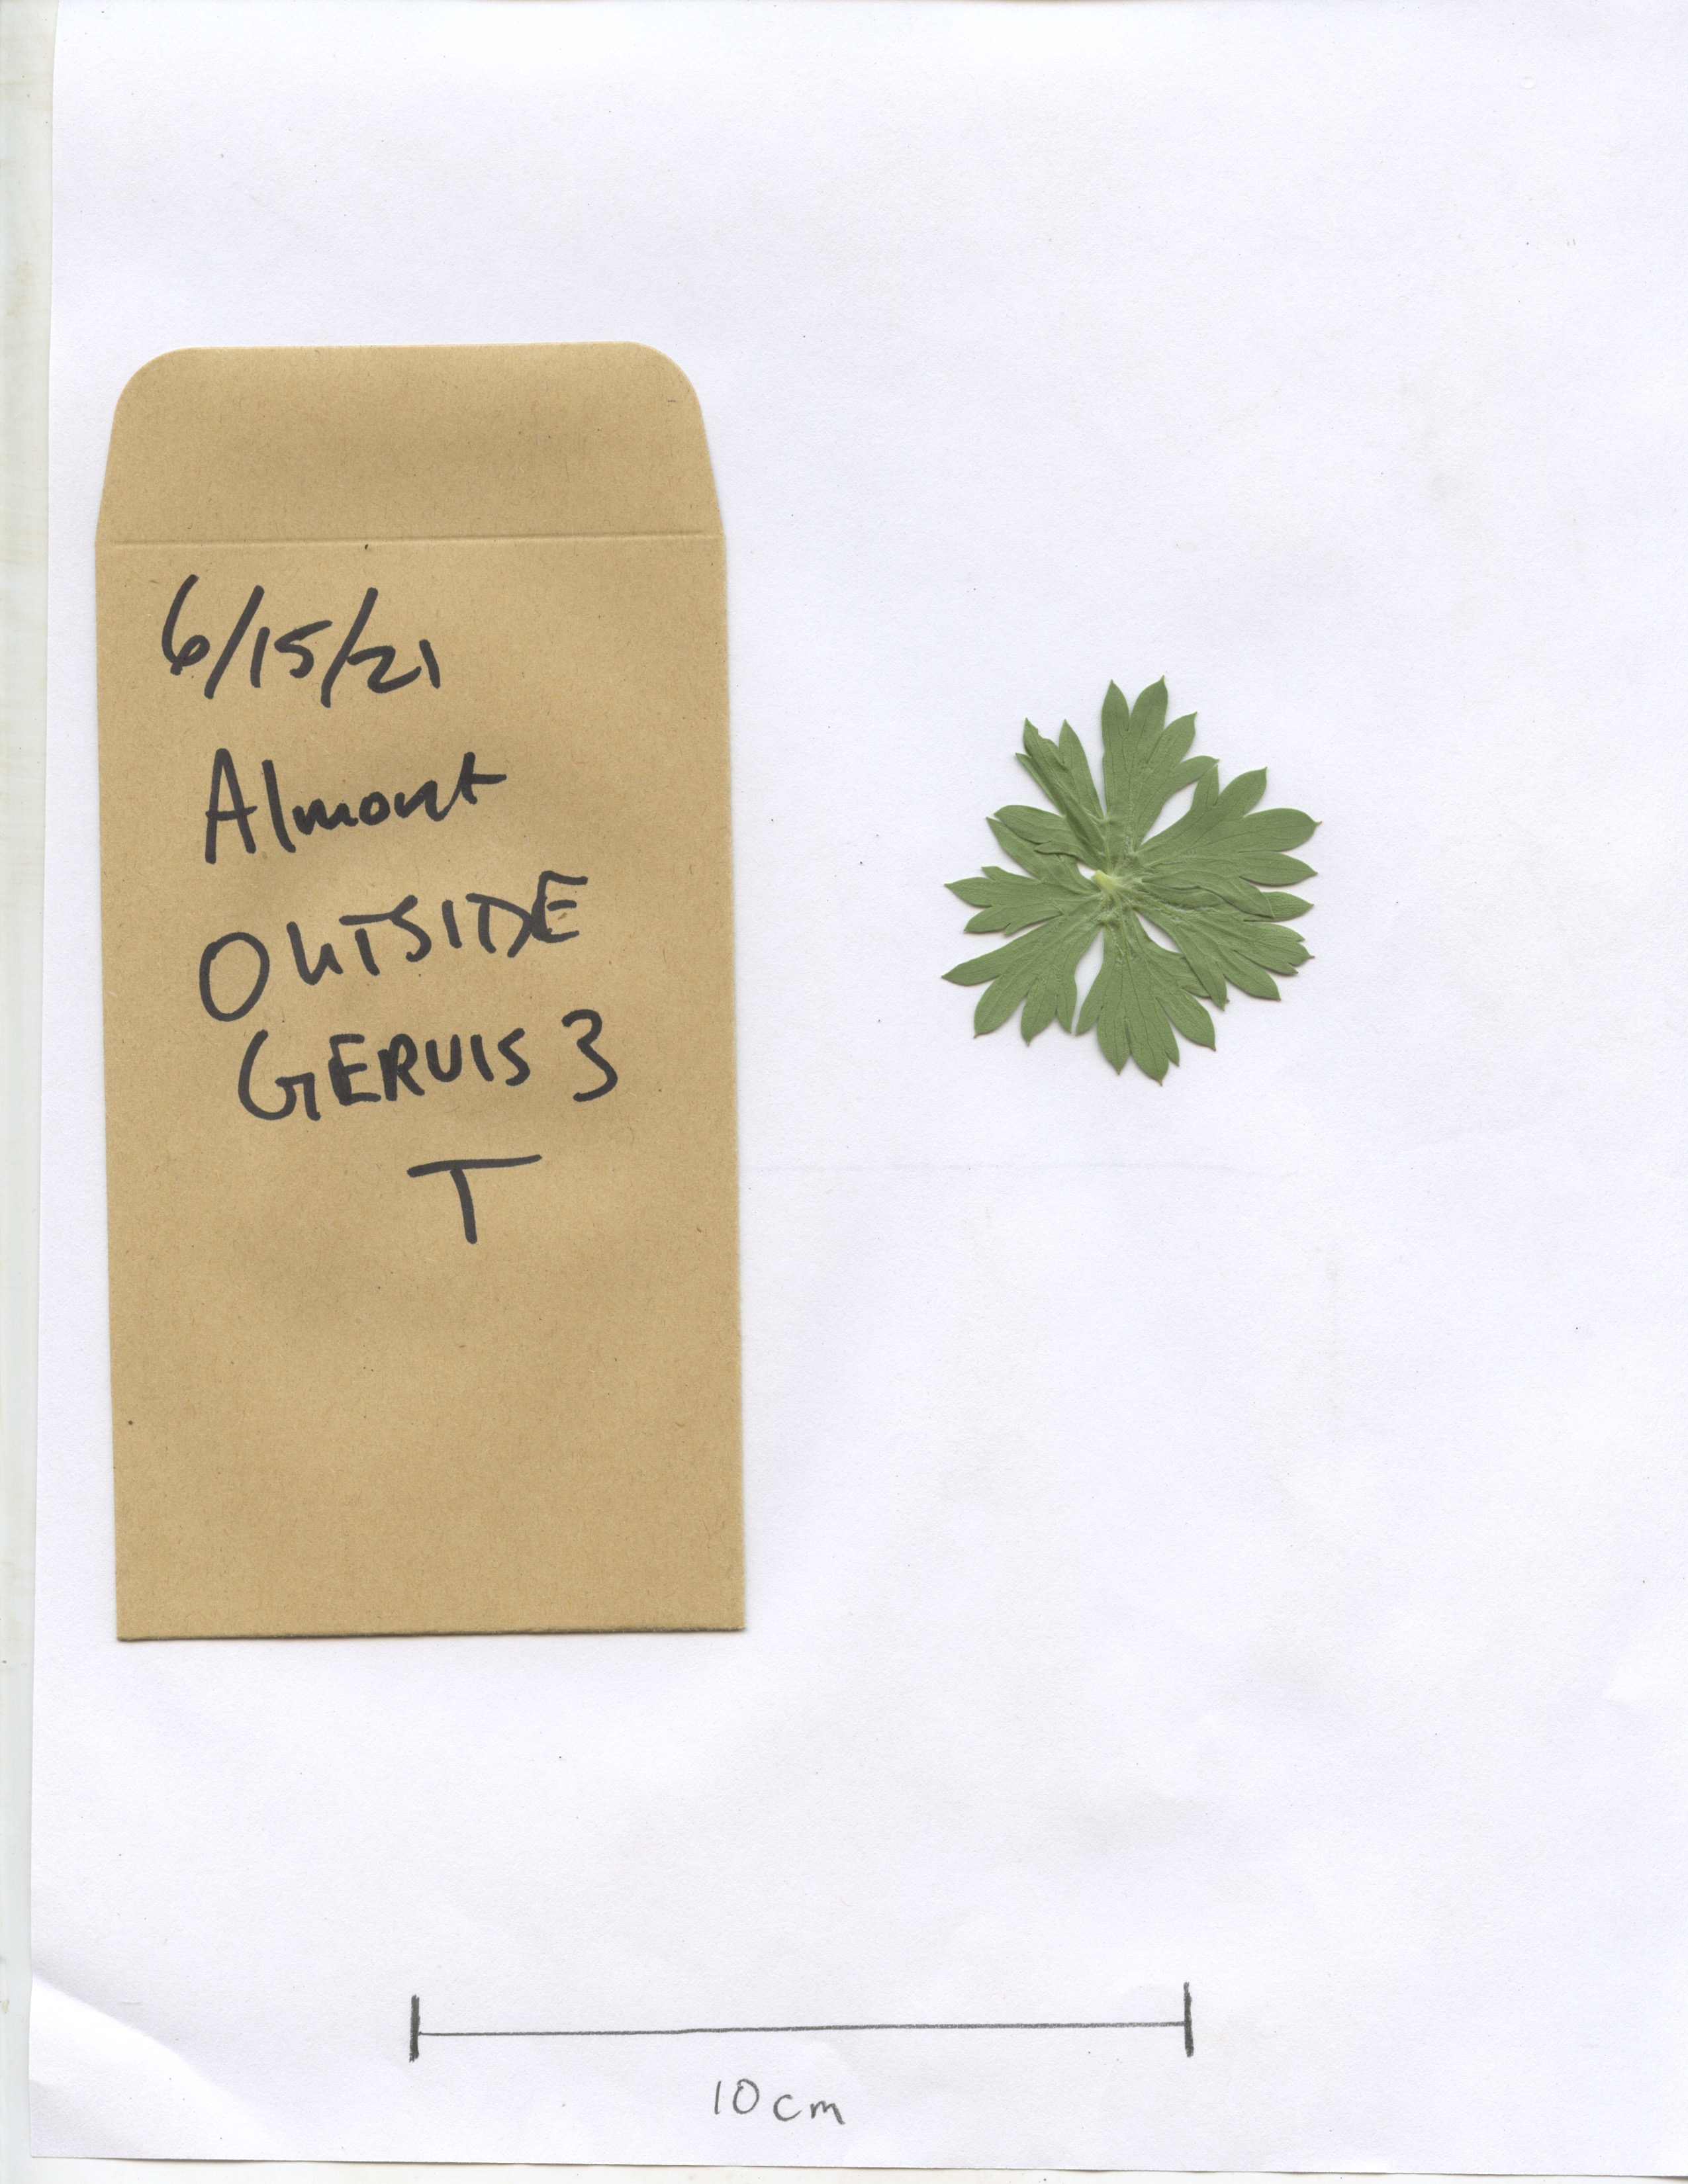 6/15/21
Almont
OUTSIDE
GERVIS 3
T
10cm